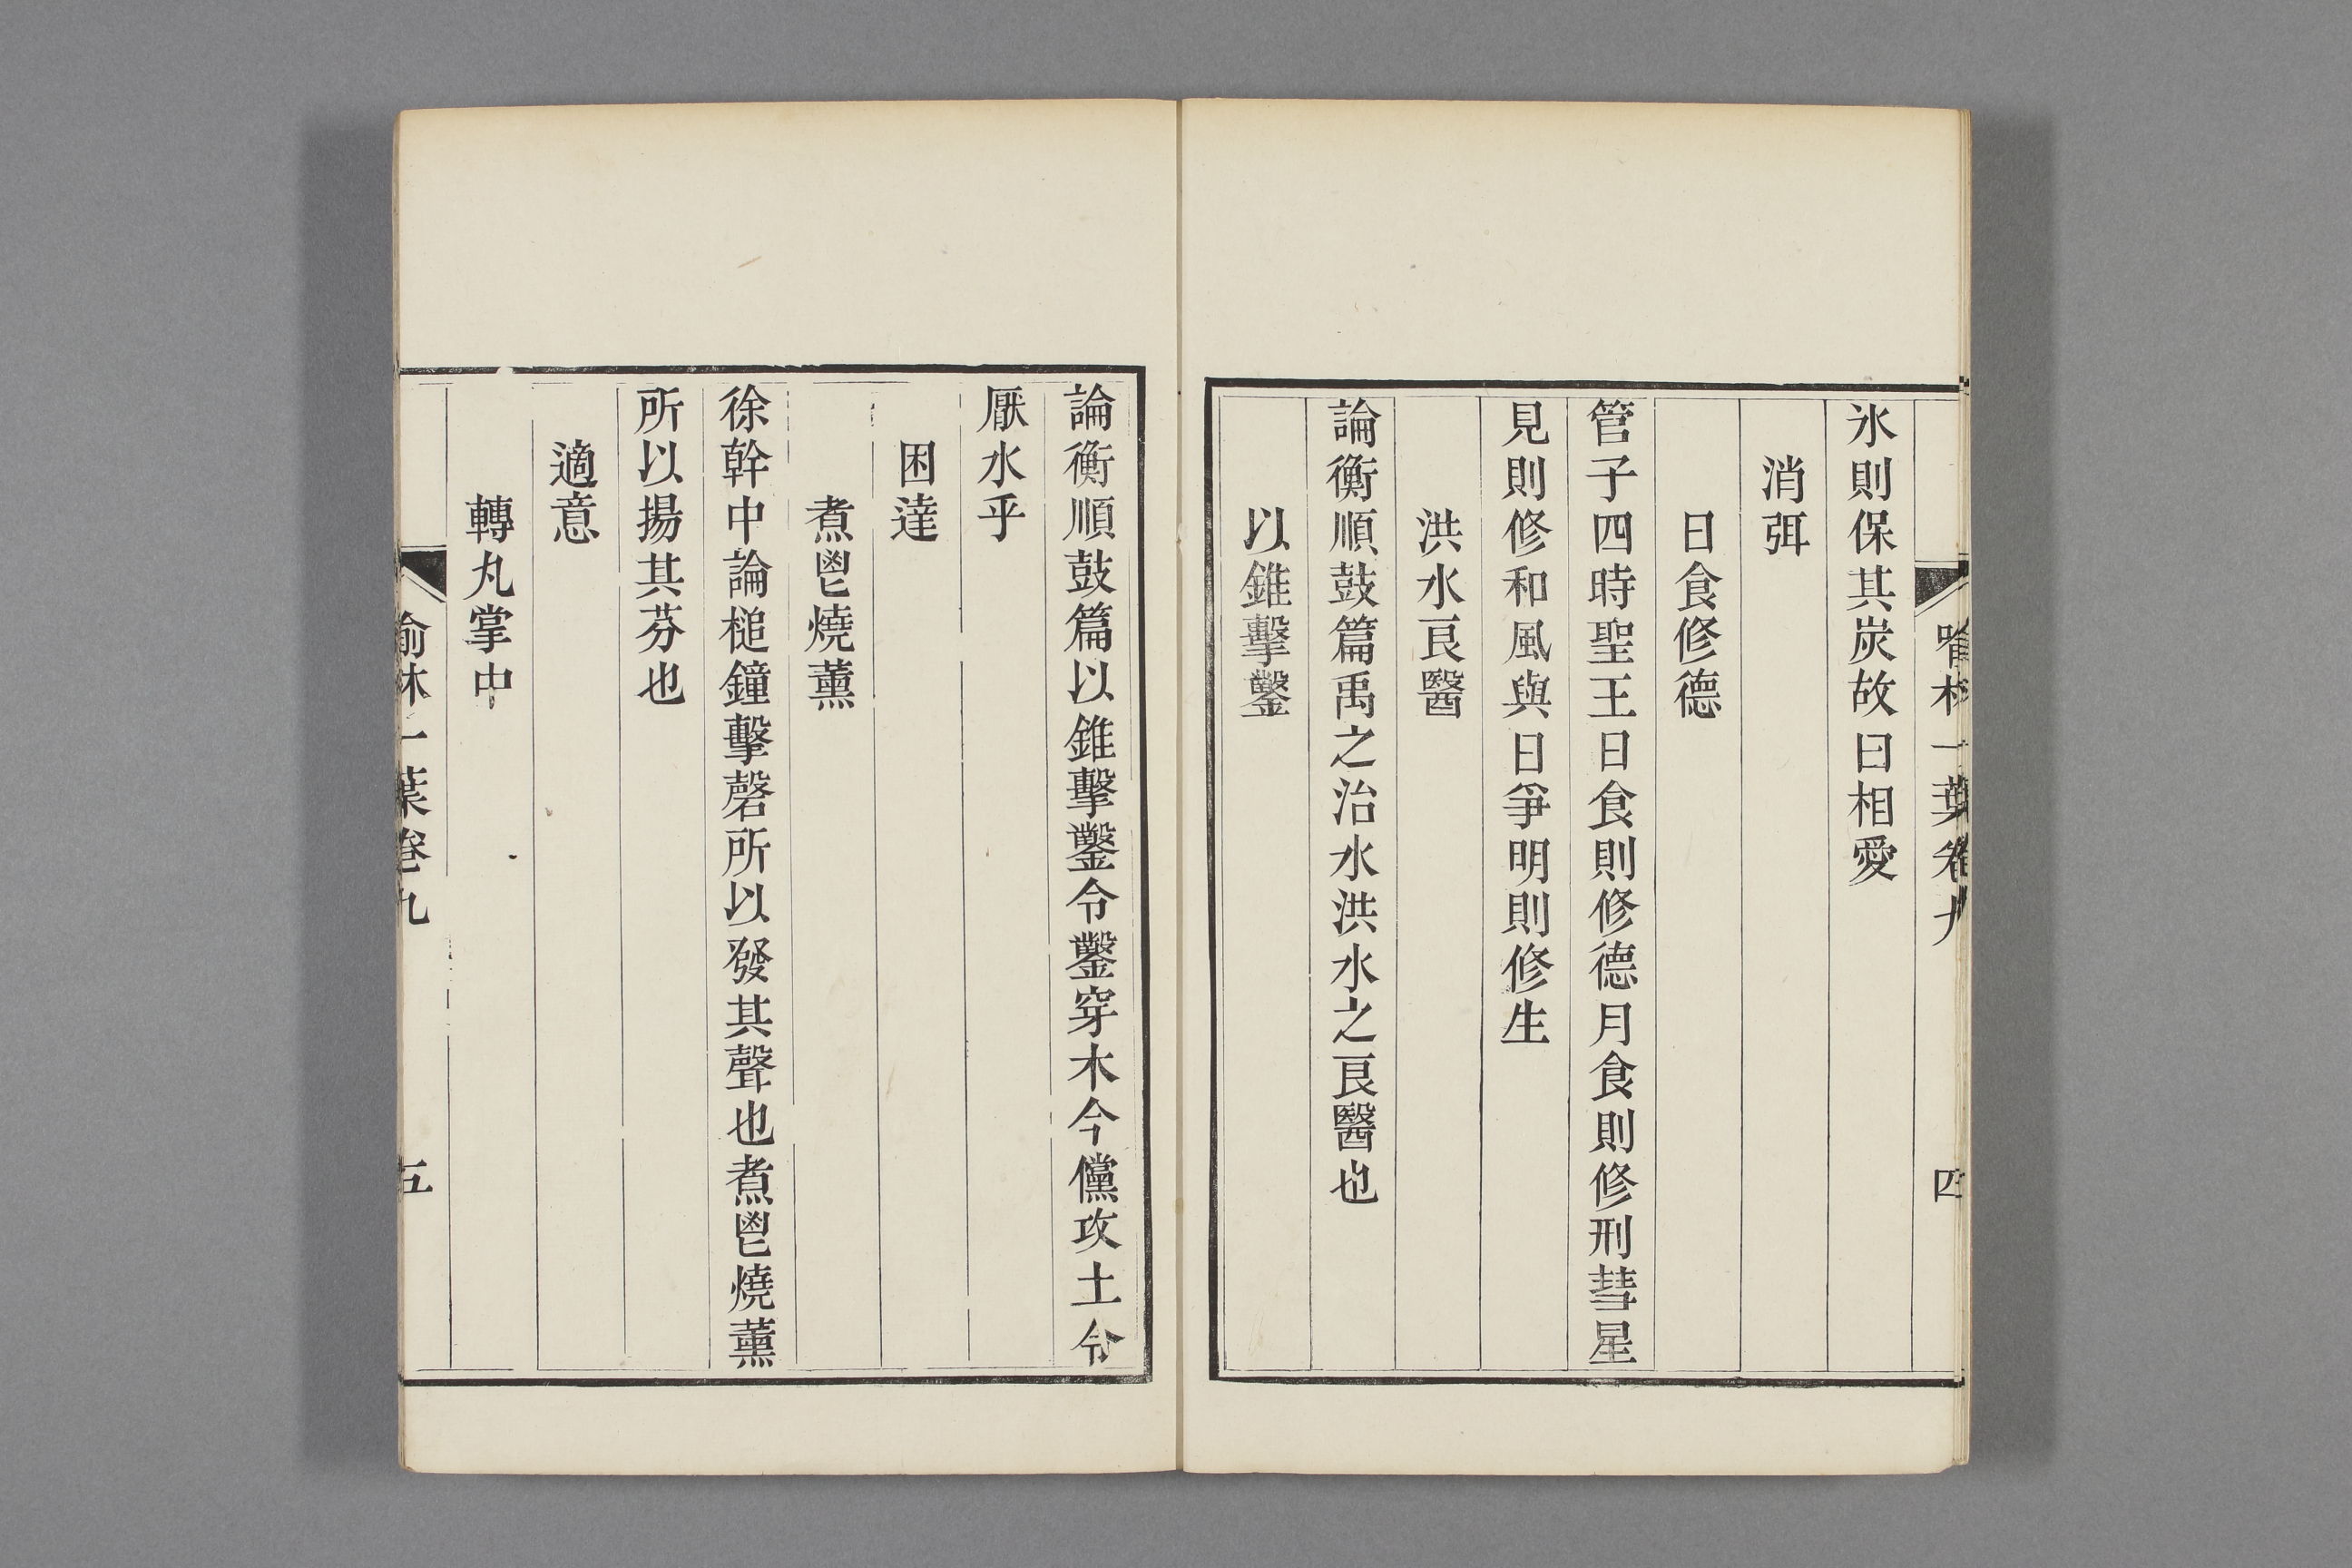 喻林一葉卷九
四
氷則保其炭故曰相愛
消弭
日食修德
管子四時聖王日食則修德月食則修刑彗星
見則修和風與日爭明則修生
洪水良醫
論衡順鼓篇禹之治水洪水之良醫也
以錐擊鑿
論衡順鼓篇以錐擊鑿令鑿穿木今儻攻土令
厭水乎
困達
煮鬯燒薰
徐幹中論槌鐘擊磬所以發其聲也煮鬯燒薰
所以揚其芬也
適意
轉丸掌中
喻林一葉卷九
五